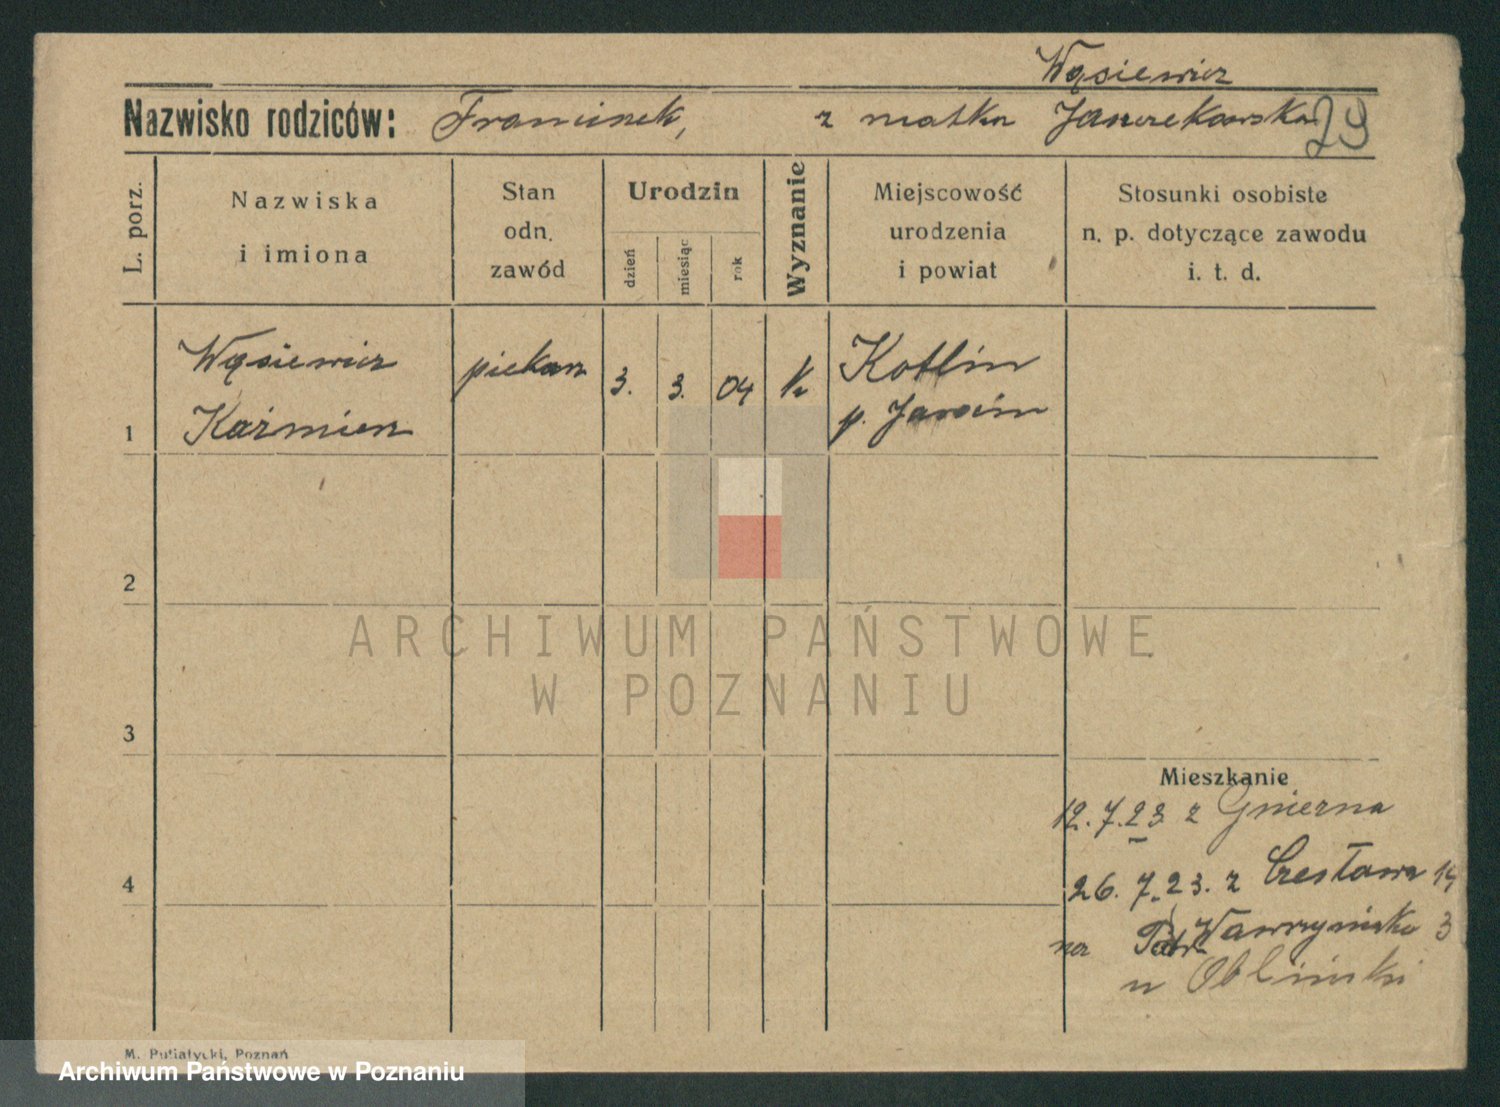 Wąsiewicz
Nazwisko rodziców: Franciszek, z matka Janczekowska 29
L. porz.
Nazwiska i imiona
Stan odn. zawód
Urodzin
dzień miesiąc rok
Wyznanie
Miejscowość urodzenia i powiat
Stosunki osobiste n. p. dotyczące zawodu i. t. d.
Wąsiewicz piekarz 3. 3. 04 k Kotlin
1 Kaźmierz p. Jarocin
2
ARCHIWUM PAŃSTWOWE
W POZNANIU
3
Mieszkanie
12.7.23 z Gniezna
4
26.7.23. z Czesława 14
na Wawrzyniaka 3
u Obliński
M. Putiatycki, Poznań
Archiwum Państwowe w Poznaniu